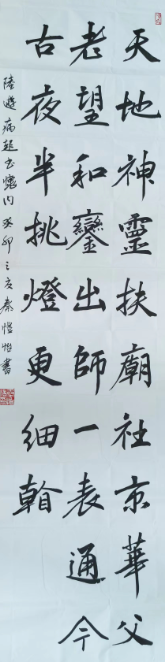 天地神靈扶廟社京華父
老望和鑾出師一表通今
古夜半挑燈更細
陸遊病起書懷 癸卯之夏秦 書